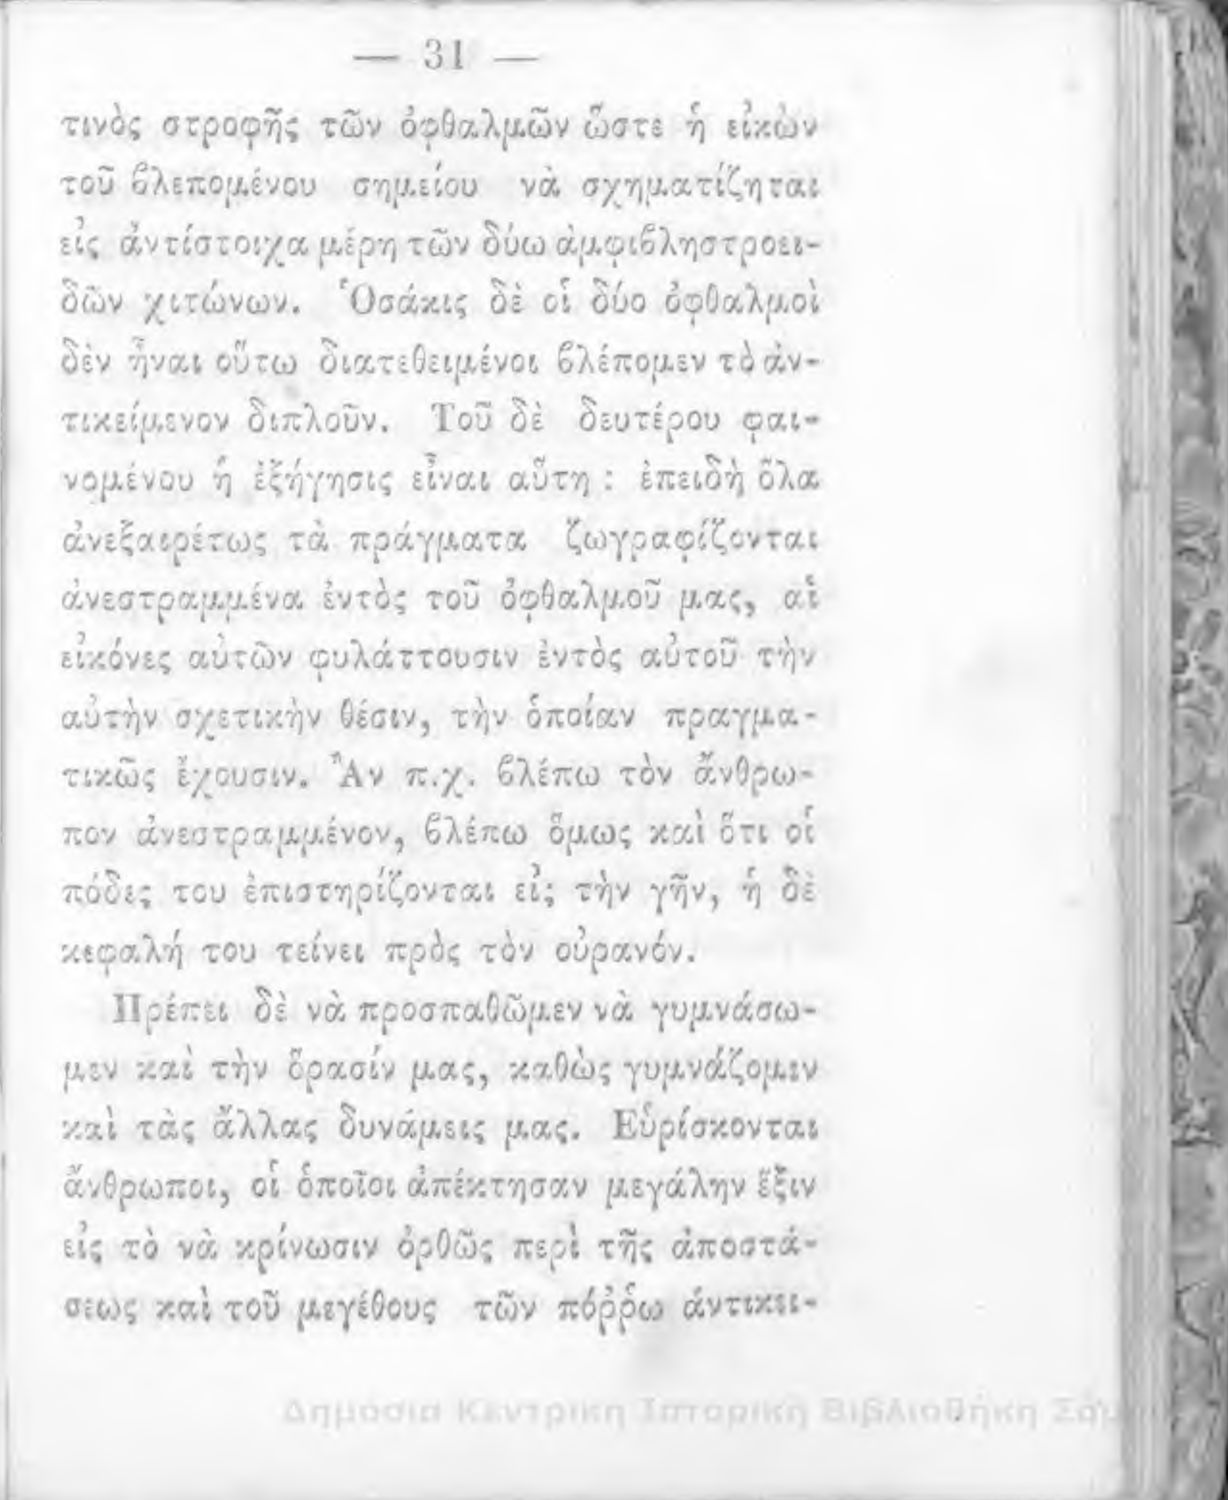 — 31 —
τινὸς στροφῆς τῶν ὀφθαλμῶν ὥστε ἡ εἰκὼν
τοῦ ϐλεπομένου σημείου νὰ σχηματίζηται
εἰς ἀντίστοιχα μέρη τῶν δύω ἀμφιϐληστροει-
δῶν χιτώνων. Ὁσάκις δὲ οἱ δύο ὀφθαλμοὶ
δὲν ἦναι οὕτω διατεθειμένοι ϐλέπομεν τὸ ἀν-
τικείμενον διπλοῦν. Τοῦ δὲ δευτέρου φαι-
νομένου ἡ ἐξήγησις εἶναι αὕτη : ἐπειδὴ ὅλα
ἀνεξαιρέτως τὰ πράγματα ζωγραφίζονται
ἀνεστραμμένα ἐντὸς τοῦ ὀφθαλμοῦ μας, αἱ
εἰκόνες αὐτῶν φυλάττουσιν ἐντὸς αὐτοῦ τὴν
αὐτὴν σχετικὴν θέσιν, τὴν ὁποίαν πραγμα-
τικῶς ἔχουσιν. Ἂν π.χ. ϐλέπω τὸν ἄνθρω-
πον ἀνεστραμμένον, ϐλέπω ὅμως καὶ ὅτι οἱ
πόδες του ἐπιστηρίζονται εἰς τὴν γῆν, ἡ δὲ
κεφαλή του τείνει πρὸς τὸν οὐρανόν.
Πρέπει δὲ νὰ προσπαθῶμεν νὰ γυμνάσω-
μεν καὶ τὴν ὅρασίν μας, καθὼς γυμνάζομεν
καὶ τὰς ἄλλας δυνάμεις μας. Εὑρίσκονται
ἄνθρωποι, οἱ ὁποῖοι ἀπέκτησαν μεγάλην ἕξιν
εἰς τὸ νὰ κρίνωσιν ὀρθῶς περὶ τῆς ἀποστά-
σεως καὶ τοῦ μεγέθους τῶν πόῤῥω ἀντικει-
Δημόσια Κεντρική Ιστορική Βιβλιοθήκη